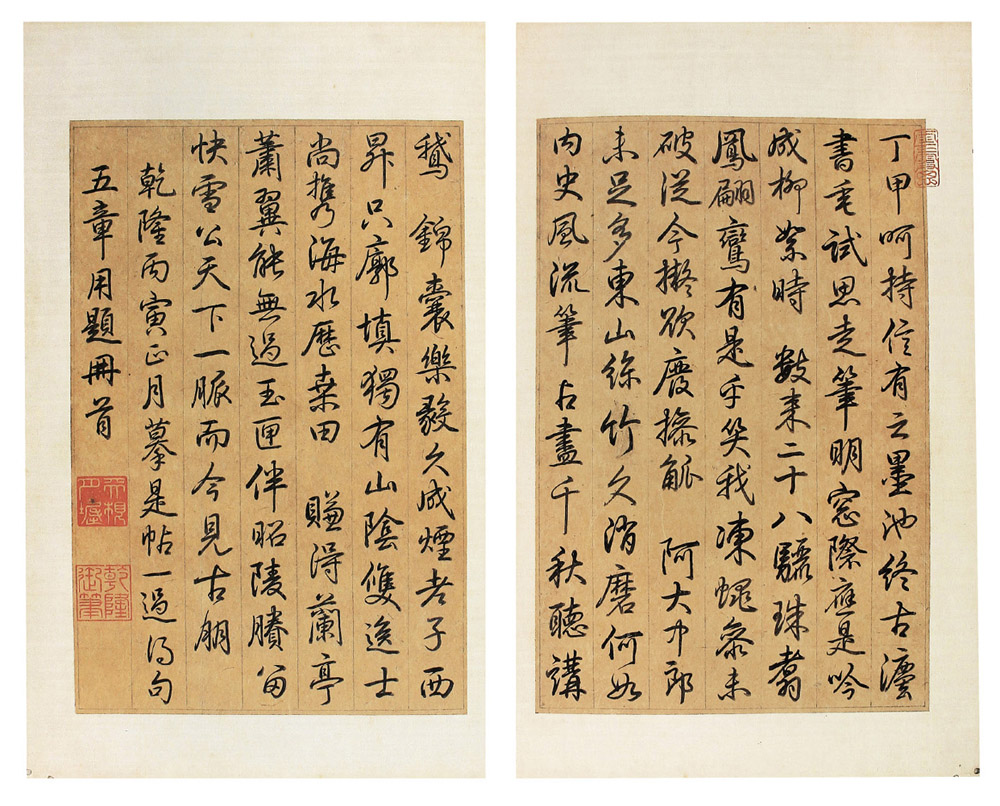 丁甲呵持信有之墨池終古灋
書垂試思走筆明窓際應是吟
成柳絮時 數来二十八驪珠翥
鳳翩鸞有是乎笑我凍蠅參未
破從今擬欲廢操觚 阿大中郎
未足多東山絲竹久消磨何如
内史風流筆占盡千秋聽講
鵝 錦囊樂毅久成煙老子西
昇只廓填獨有山陰雙逸士
尚携海水歷桑田 賺得蘭亭
蕭翼能無過玉匣伴昭陵賸留
快雪公天下一脈而今見古朋
乾隆丙寅正月摹是帖一過得句
五章用題冊首
乾隆御筆